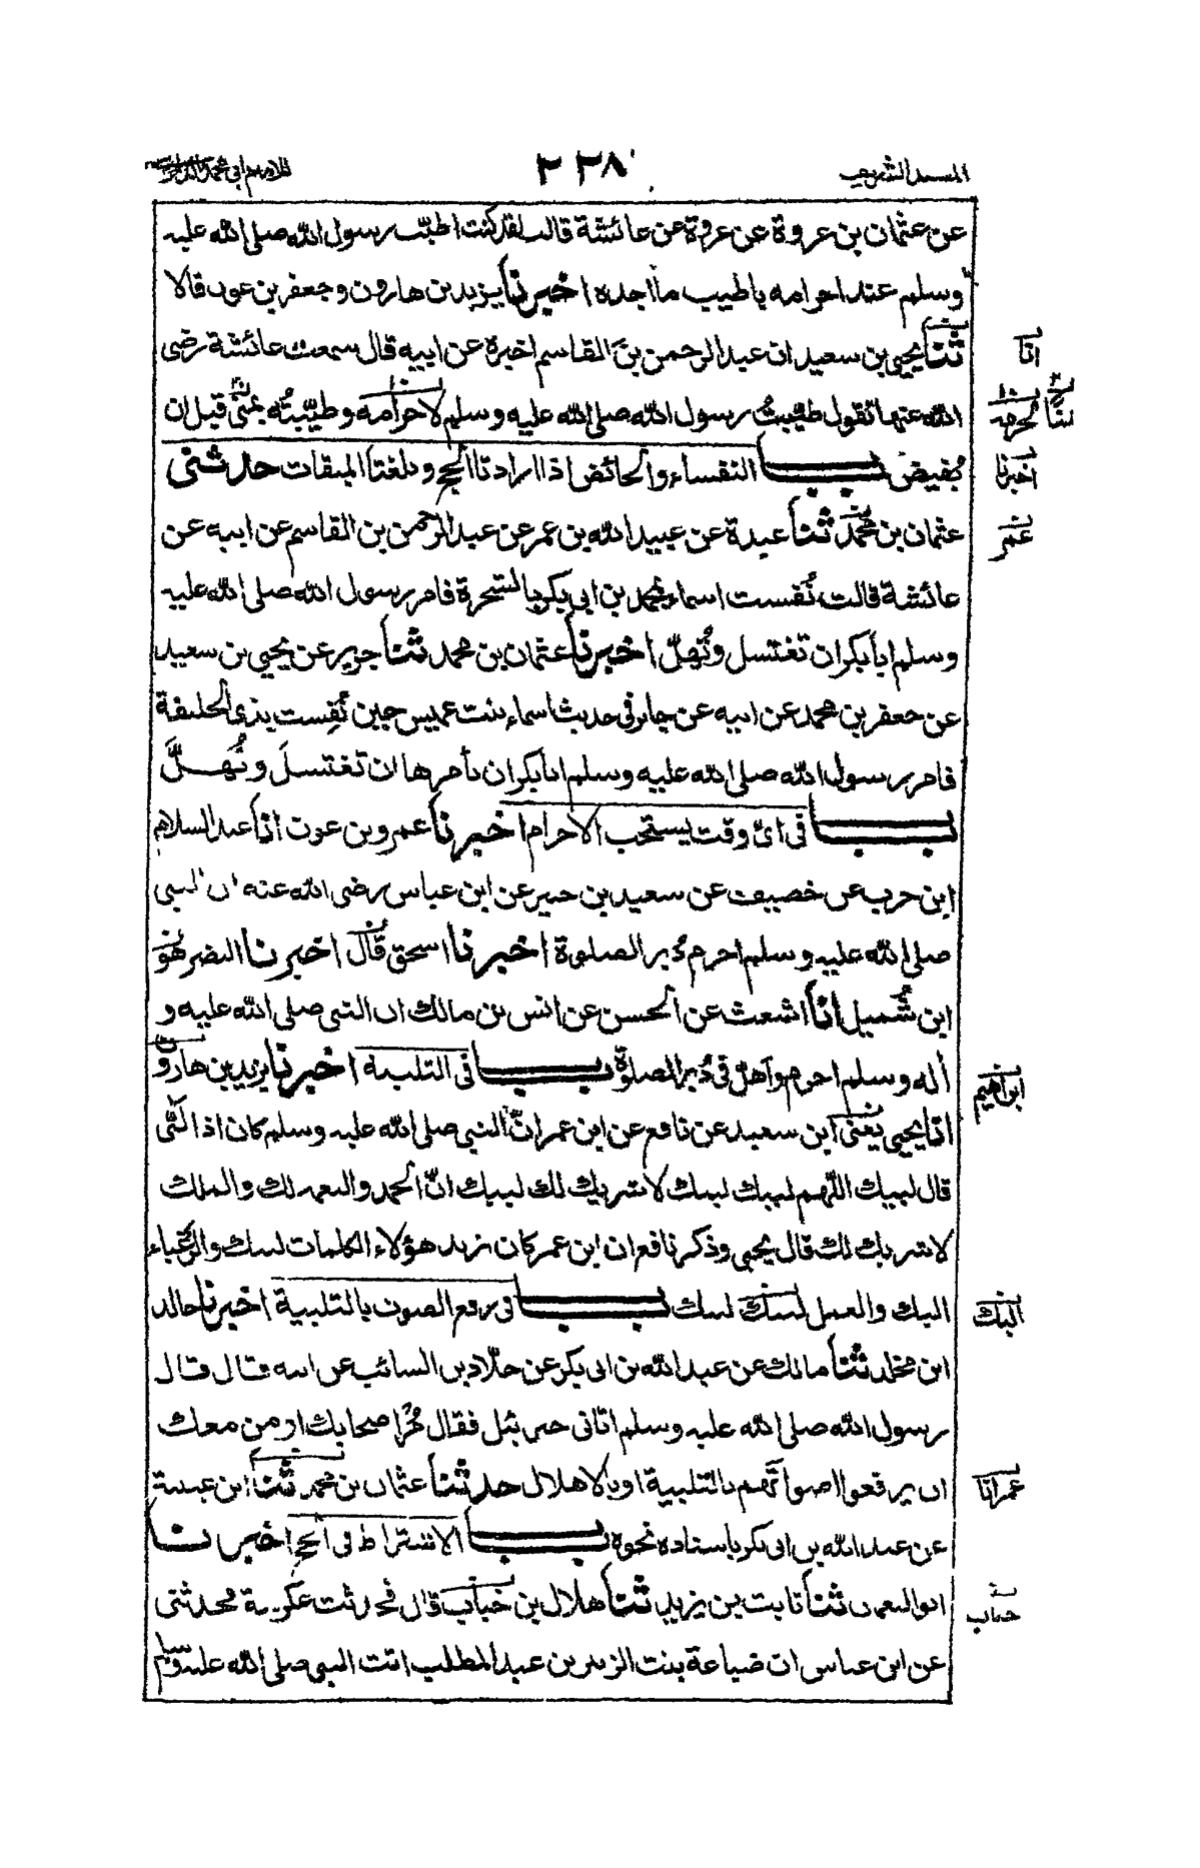 المسند الشريف
٢٣٨
للامام ابي محمد الدارمي
عن عثمان بن عروة عن عروة عن عائشة قالت لقد كنت اطيّب رسول الله صلى الله عليه
وسلم عند احرامه باطيب ما اجده اخبرنا يزيد بن هارون وجعفر بن عون قالا
ثنا يحيى بن سعيد ان عبد الرحمن بن القاسم اخبره عن ابيه قال سمعت عائشة رضى
الله عنها تقول طيّبتُ رسول الله صلى الله عليه وسلم لاحرامه وطيّبتُه بمنى قبل ان
يُفيض باب النفساء والحائض اذا ارادتا الحج وبلغتا الميقات حدثنى
عثمان بن محمد ثنا عبدة عن عبيد الله بن عمر عن عبد الرحمن بن القاسم عن ابيه عن
عائشة قالت نُفست اسماء بمحمد بن ابى بكر بالشجرة فامر رسول الله صلى الله عليه
وسلم ابا بكر ان تغتسل وتُهلّ اخبرنا عثمان بن محمد ثنا جرير عن يحيى بن سعيد
عن جعفر بن محمد عن ابيه عن جابر فى حديث اسماء بنت عميس حين نُفِست بذى الحليفة
فامر رسول الله صلى الله عليه وسلم ابا بكر ان يأمرها ان تغتسلَ وتُهلَّ
باب فى اىّ وقت يستحب الاحرام اخبرنا عمرو بن عون انا عبد السلام
ابن حرب عن خصيف عن سعيد بن جبير عن ابن عباس رضى الله عنه ان النبى
صلى الله عليه وسلم احرم دُبر الصلوة اخبرنا اسحق قال اخبرنا النضر هُوَ
ابن شُميل انا اشعث عن الحسن عن انس بن مالك ان النبى صلى الله عليه و
أله وسلم احرم واهلّ فى دُبر الصلوة باب فى التلبية اخبرنا يزيد بن هارون
انا يحيى يعنى ابن سعيد عن نافع عن ابن عمر انّ النبي صلى الله عليه وسلم كان اذا لَبّى
قال لبيك اللّهم لبيك لبيك لا شريك لك لبيك انّ الحمد والنعمة لك والملك
لا شريك لك قال يحيى وذكر نافع ان ابن عمر كان يزيد هؤلاء الكلمات لبيك والرغباء
اليك والعمل لبيك لبيك باب فى رفع الصوت بالتلبية اخبرنا خالد
ابن مخلد ثنا مالك عن عبد الله بن ابى بكر عن خلّاد بن السائب عن ابيه قال قال
رسول الله صلى الله عليه وسلم اتانى جبرئيل فقال مُر اصحابك او من معك
ان يرفعوا اصواتهم بالتلبية او بالاهلال حدثنا عثمان بن محمد ثنا ابن عيينة
عن عبد الله بن ابى بكر باسناده نحوه باب الاشتراط فى الحج اخبرنا
ابو النعمان ثنا ثابت بن يزيد ثنا هلال بن خباب قال فحدثت عكرمة فحدثنى
عن ابن عباس ان ضباعة بنت الزبير بن عبد المطلب اتت النبى صلى الله عليه وسلم
انا
اخبرنا
عمر
ابراهيم
اليك
عمر انا